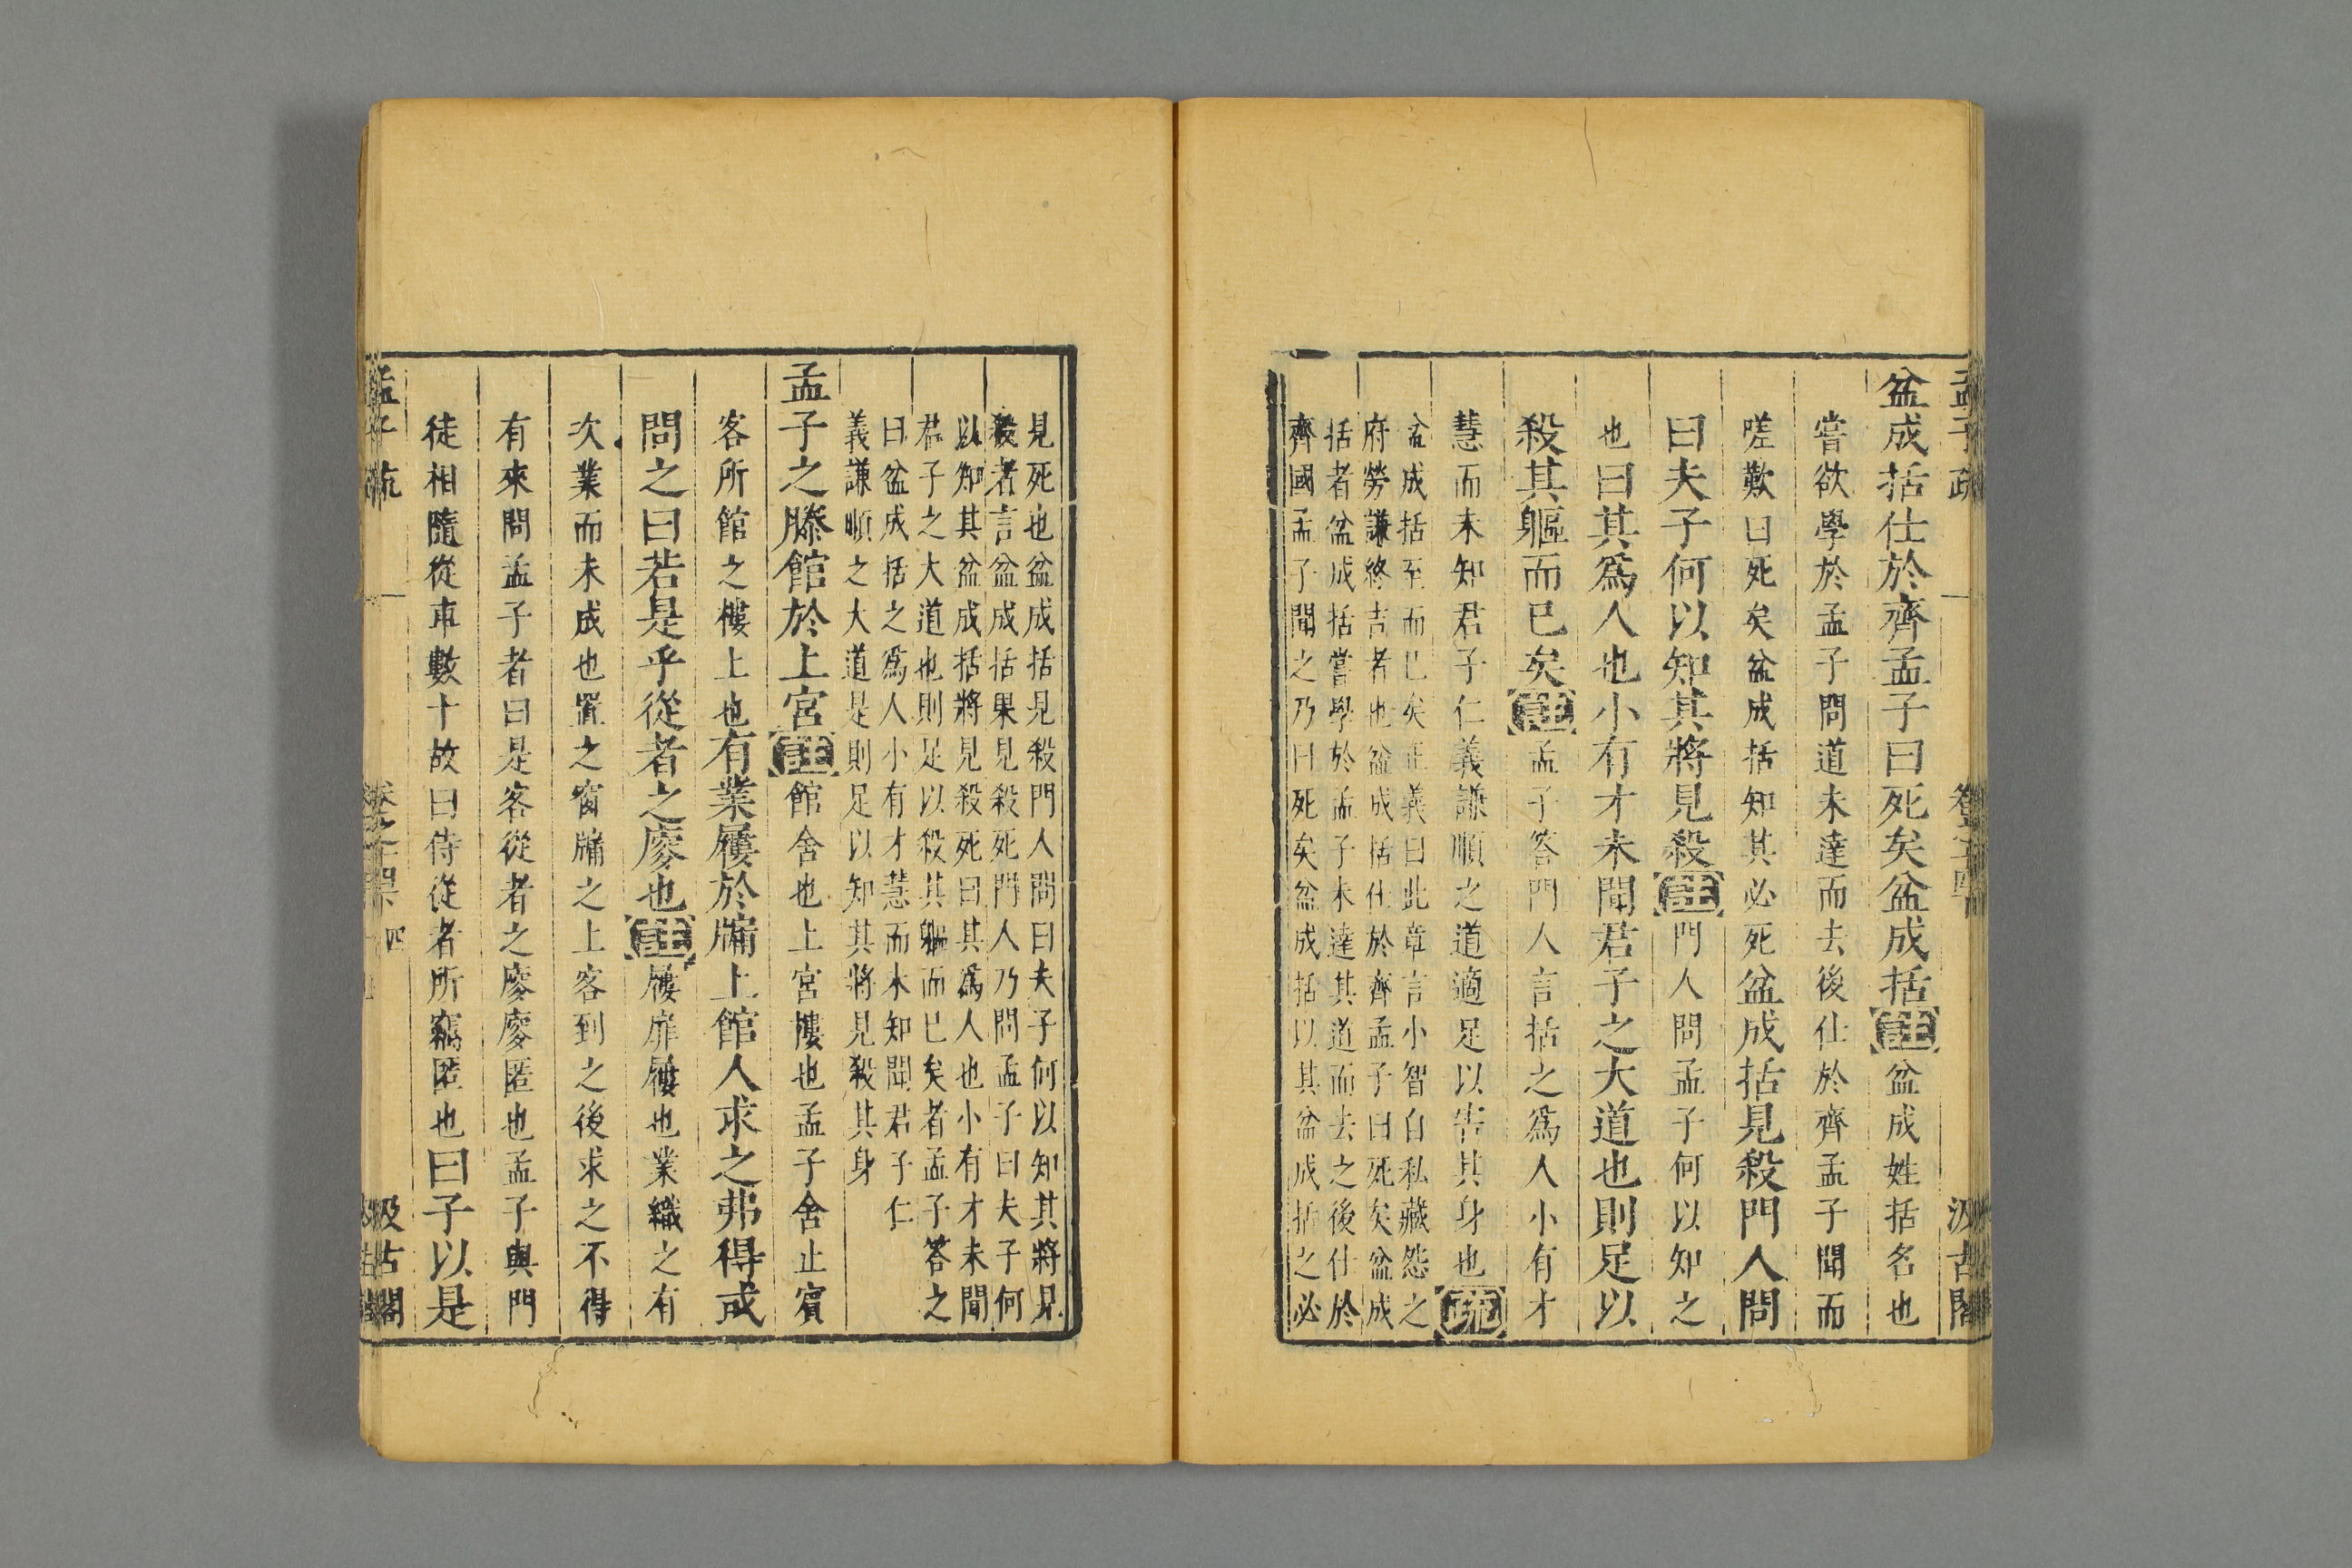 孟子疏 汲古閣
盆成括仕於齊孟子曰死矣盆成括註盆成姓括名也
嘗欲學於孟子問道未達而去後仕於齊孟子聞而
嗟歎曰死矣盆成括知其必死盆成括見殺門人問
曰夫子何以知其將見殺註門人問孟子何以知之
也曰其爲人也小有才未聞君子之大道也則足以
殺其軀而已矣註孟子答門人言括之爲人小有才
慧而未知君子仁義謙順之道適足以害其身也疏
盆成括至而已矣正義曰此章言小智自私藏怨之
府勞謙終吉者也盆成括仕於齊孟子曰死矣盆成
括者盆成括嘗學於孟子未達其道而去之後仕於
齊國孟子聞之乃曰死矣盆成括以其盆成括之必
見死也盆成括見殺門人問曰夫子何以知其將見
殺者言盆成括果見殺死門人乃問孟子曰夫子何
以知其盆成括將見殺死曰其爲人也小有才未聞
君子之大道也則足以殺其軀而已矣者孟子答之
曰盆成括之爲人小有才慧而未知聞君子仁
義謙順之大道是則足以知其將見殺其身
孟子之滕館於上宮註館舍也上宮樓也孟子舍止賓
客所館之樓上也有業屨於牖上館人求之弗得或
問之曰若是乎從者之廖也註屨扉屨也業織之有
次業而未成也置之窗牖之上客到之後求之不得
有來問孟子者曰是客從者之廖廖匿也孟子與門
徒相隨從車數十故曰侍從者所竊匿也曰子以是
孟子疏 四 汲古閣